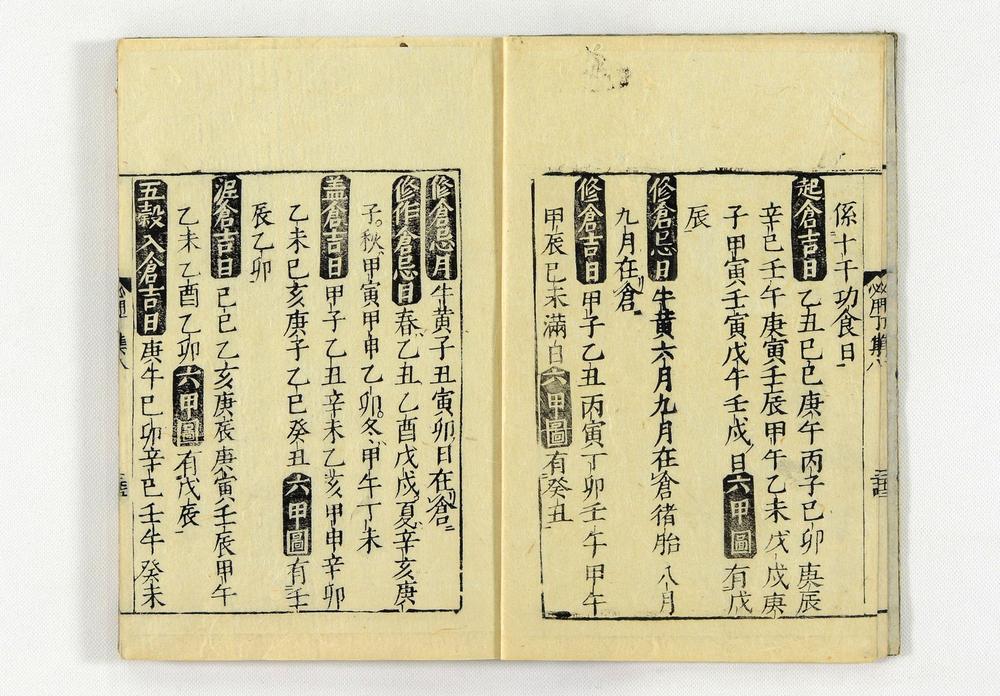 係十干功食日
起倉吉日乙丑巳巳庚午丙子巳卯庚辰
辛巳壬午庚寅壬辰甲午乙未戊戌庚
子甲寅壬寅戊午壬戌日六甲圖有戊
辰
修倉忌日牛黃六月九月在倉猪胎八月
九月在倉
修倉吉日甲子乙丑丙寅丁卯壬午甲午
甲辰巳未滿日六甲圖有癸丑
修倉忌月牛黃子丑寅卯日在倉
修作倉忌日春乙丑乙酉戊戌夏辛亥庚
子。秋甲寅甲申乙卯。冬甲午丁未
盖倉吉日甲子乙丑辛未乙亥甲申辛卯
乙未巳亥庚子乙巳癸丑六甲圖有壬
辰乙卯
泥倉吉日巳巳乙亥庚辰庚寅壬辰甲午
乙未乙酉乙卯六甲圖有戊辰
五穀入倉吉日庚午巳卯辛巳壬午癸未